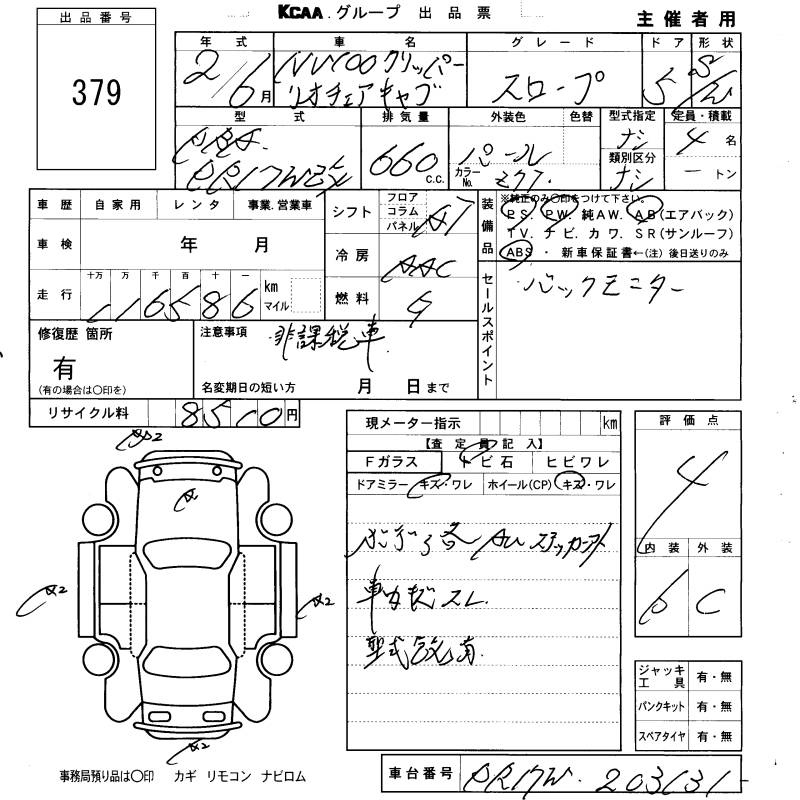 KCAA グループ 出品票
主催者用
出品番号
379
年式 車名 グレード ドア 形状
2/6月 NV100クリッパー スロープ 5 S/W
リオチェアキャブ
型式 排気量 外装色 色替 型式指定 定員・積載
660 c.c. パール ナシ 4名
DR17W改 カラーNo. 類別区分 ナシ ートン
車歴 自家用 レンタ 事業.営業車
シフト フロア コラム パネル AT
車検 年 月
冷房 AAC
走行 十万 万 千 百 十 一
116586 km マイル
燃料 G
装備品 ※純正のみ〇印をつけて下さい。
PS. PW. 純AW. AB(エアバック)
TV. ナビ. カワ. SR(サンルーフ)
ABS ・ 新車保証書←(注) 後日送りのみ
セールスポイント
バックモニター
修復歴 箇所
有
(有の場合は〇印を)
注意事項 非課税車
名変期日の短い方 月 日まで
リサイクル料 8510円
現メーター指示 km
【査定員記入】
Fガラス トビ石 ヒビワレ
ドアミラー キズ・ワレ ホイール(CP) キズ・ワレ
車内キズスレ
型式改有
評価点
4
内装 外装
B C
A2
A
A2
A2
A2
ジャッキ工具 有・無
パンクキット 有・無
スペアタイヤ 有・無
事務局預り品は〇印 カギ リモコン ナビロム
車台番号 DR17W-203131-